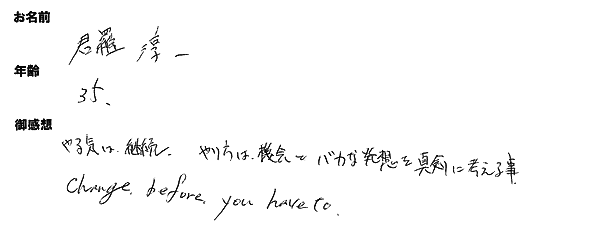 お名前
君羅 淳一
年齢
35、
御感想
やる気は、継続。 やり方は、機会とバカな発想を真剣に考える事
Change, before, you have to.